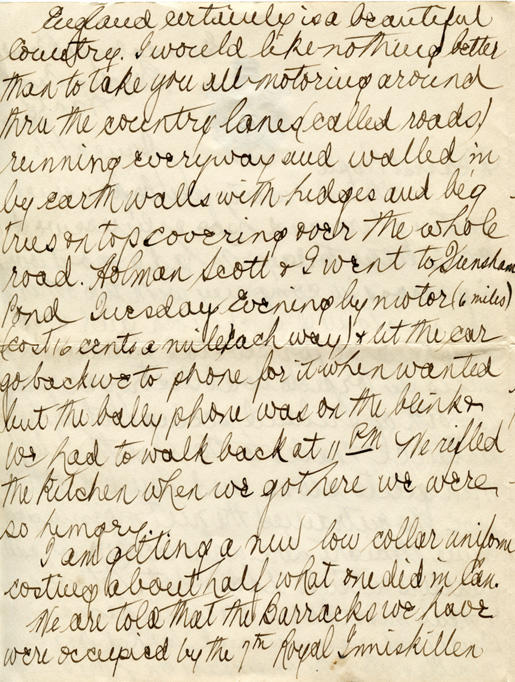 England certainly is a beautiful
Country. I would like nothing better
than to take you all motoring around
thru the country lanes (called roads)
running everyway and walled in
by earth walls with hedges and big
trees on top covering over the whole
road. Holman Scott & I went to Frensham
Pond Tuesday Evening by motor (6 miles)
(cost 16 cents a mile each way) & let the car
go back we to phone for it when wanted
but the bally phone was on the blink &
we had to walk back at 11 PM We rifled
the kitchen when we got here we were
so hungry.
I am getting a new low collar uniform
costing about half what one did in Can.
We are told that the Barracks we have
were occupied by the 7th Royal Inniskillen